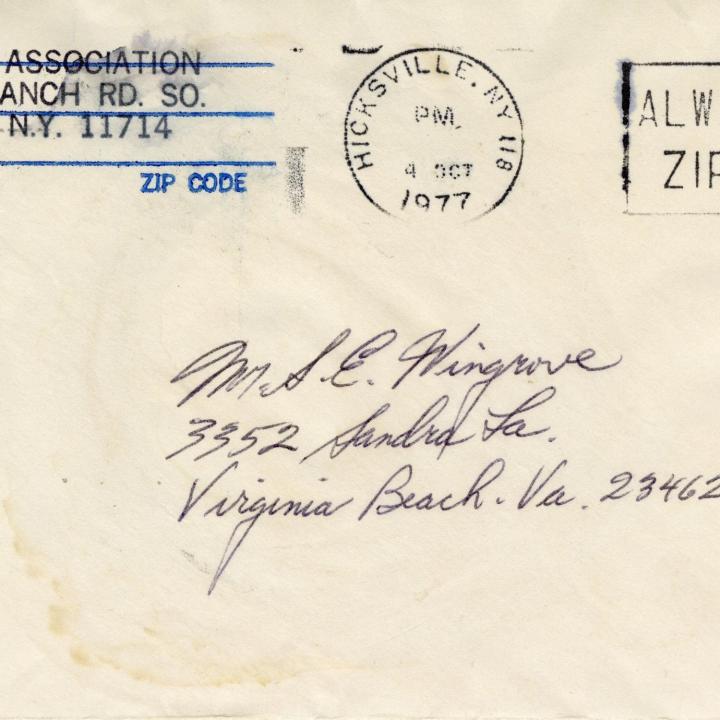 ASSOCIATION
ANCH RD. SO.
N.Y. 11714
ZIP CODE
HICKSVILLE, NY 118
PM
4 OCT
1977
ALW
ZIP
Mr. S. E. Wingrove
3352 Sandra La.
Virginia Beach. Va. 23462